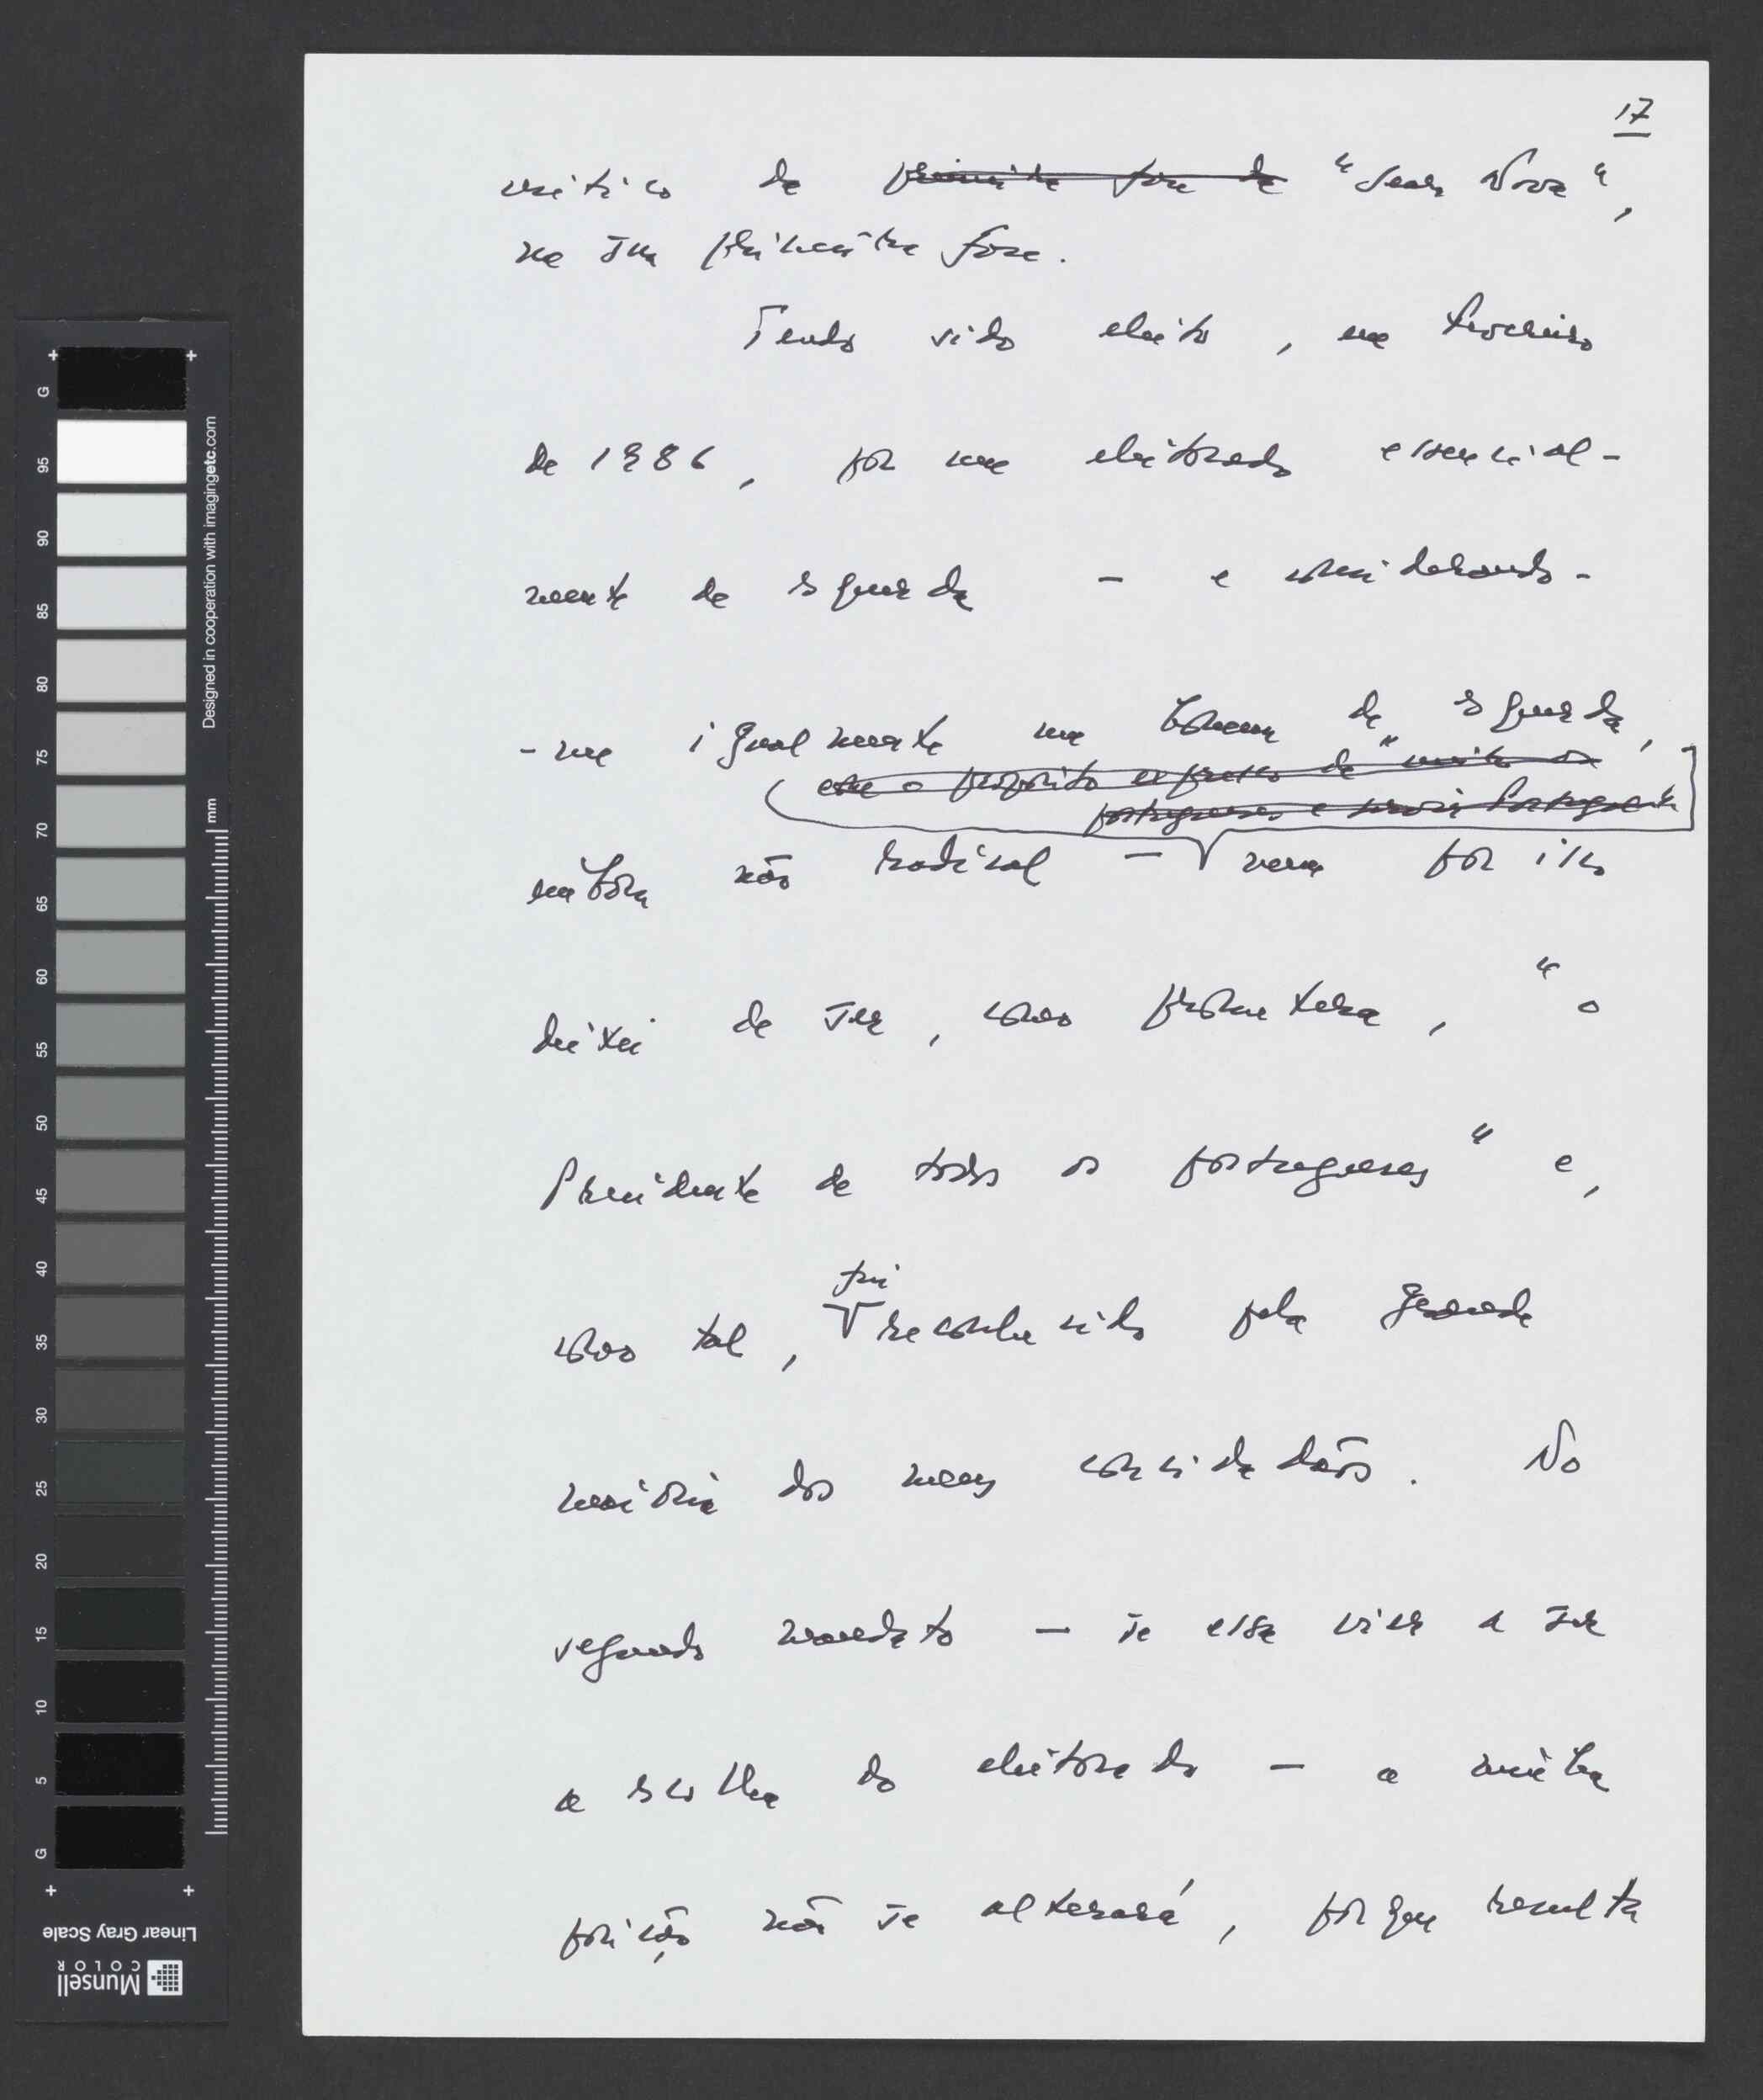 17
crítico da primeira fase da "Seara Nova",
na sua primeira fase.
Tendo sido eleito, em Fevereiro
de 1986, por um eleitorado essencial-
mente de esquerda – e considerando-
-me igualmente um homem de esquerda,
com o propósito expresso de "unir os
portugueses e servir Portugal"
embora não radical – nem por isso
deixei de ser, como prometera, "o
Presidente de todos os portugueses" e,
fui
como tal, reconhecido pela grande
maioria dos meus concidadãos. No
segundo mandato – se essa vier a ser
a escolha do eleitorado – a minha
posição não se alterará, porque resulta
G
95
90
85
80
75
70
65
60
55
50
45
40
35
30
25
20
15
10
5
G
mm
Designed in cooperation with imagingetc.com
Linear Gray Scale
Munsell
COLOR